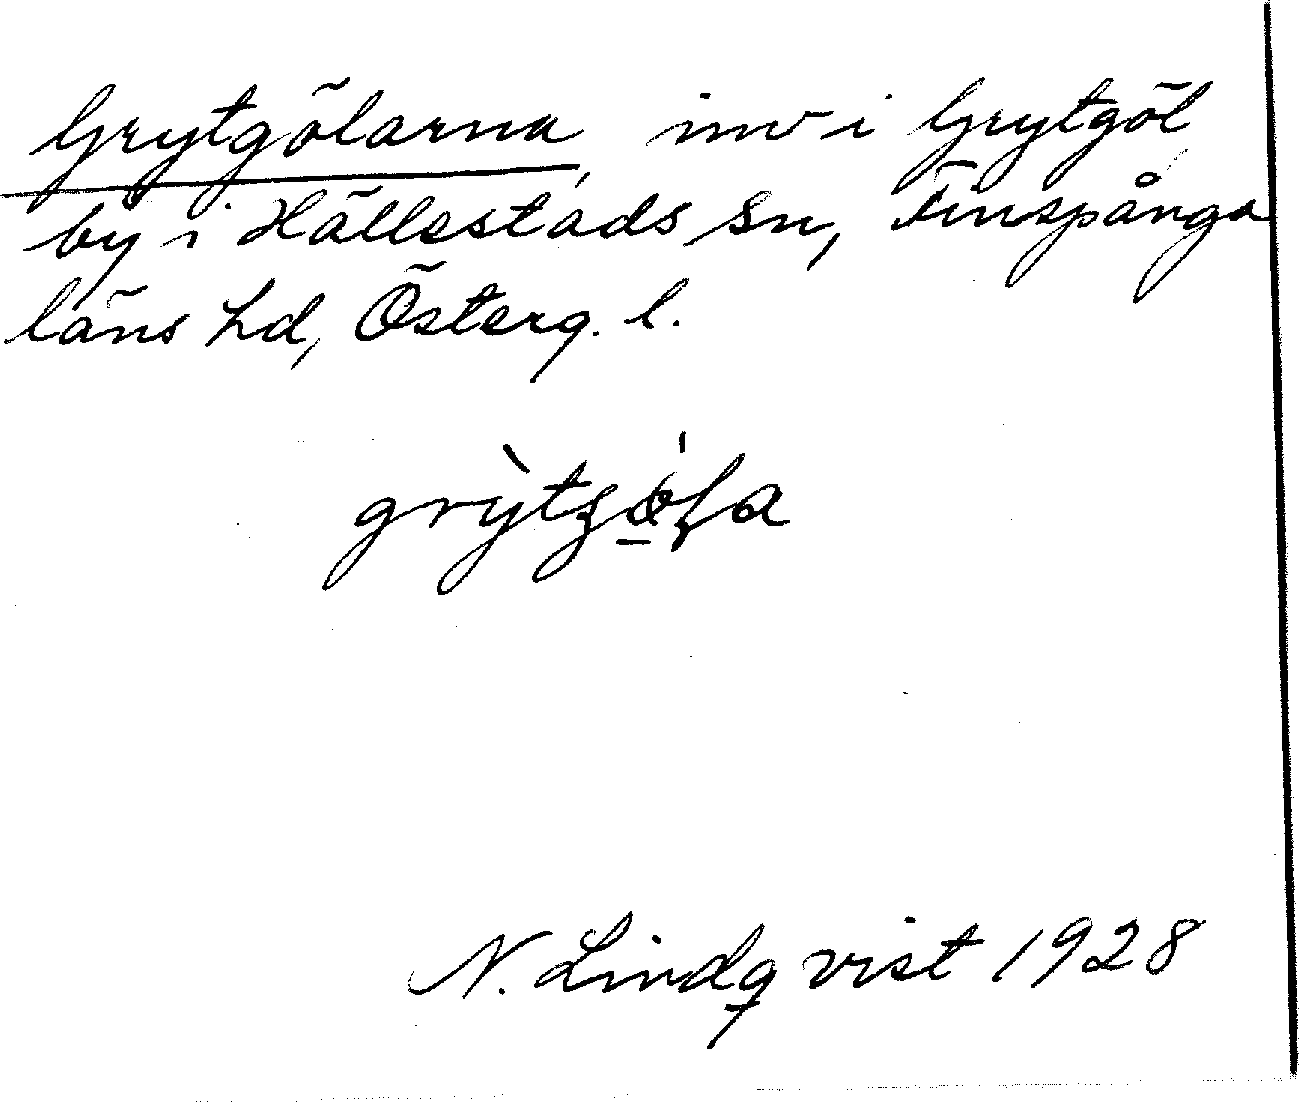 Grytgölarna, inv i Grytgöl,
by i Hällestads sn, Finspånga
läns hd, Österg. l.
N. Lindqvist 1928